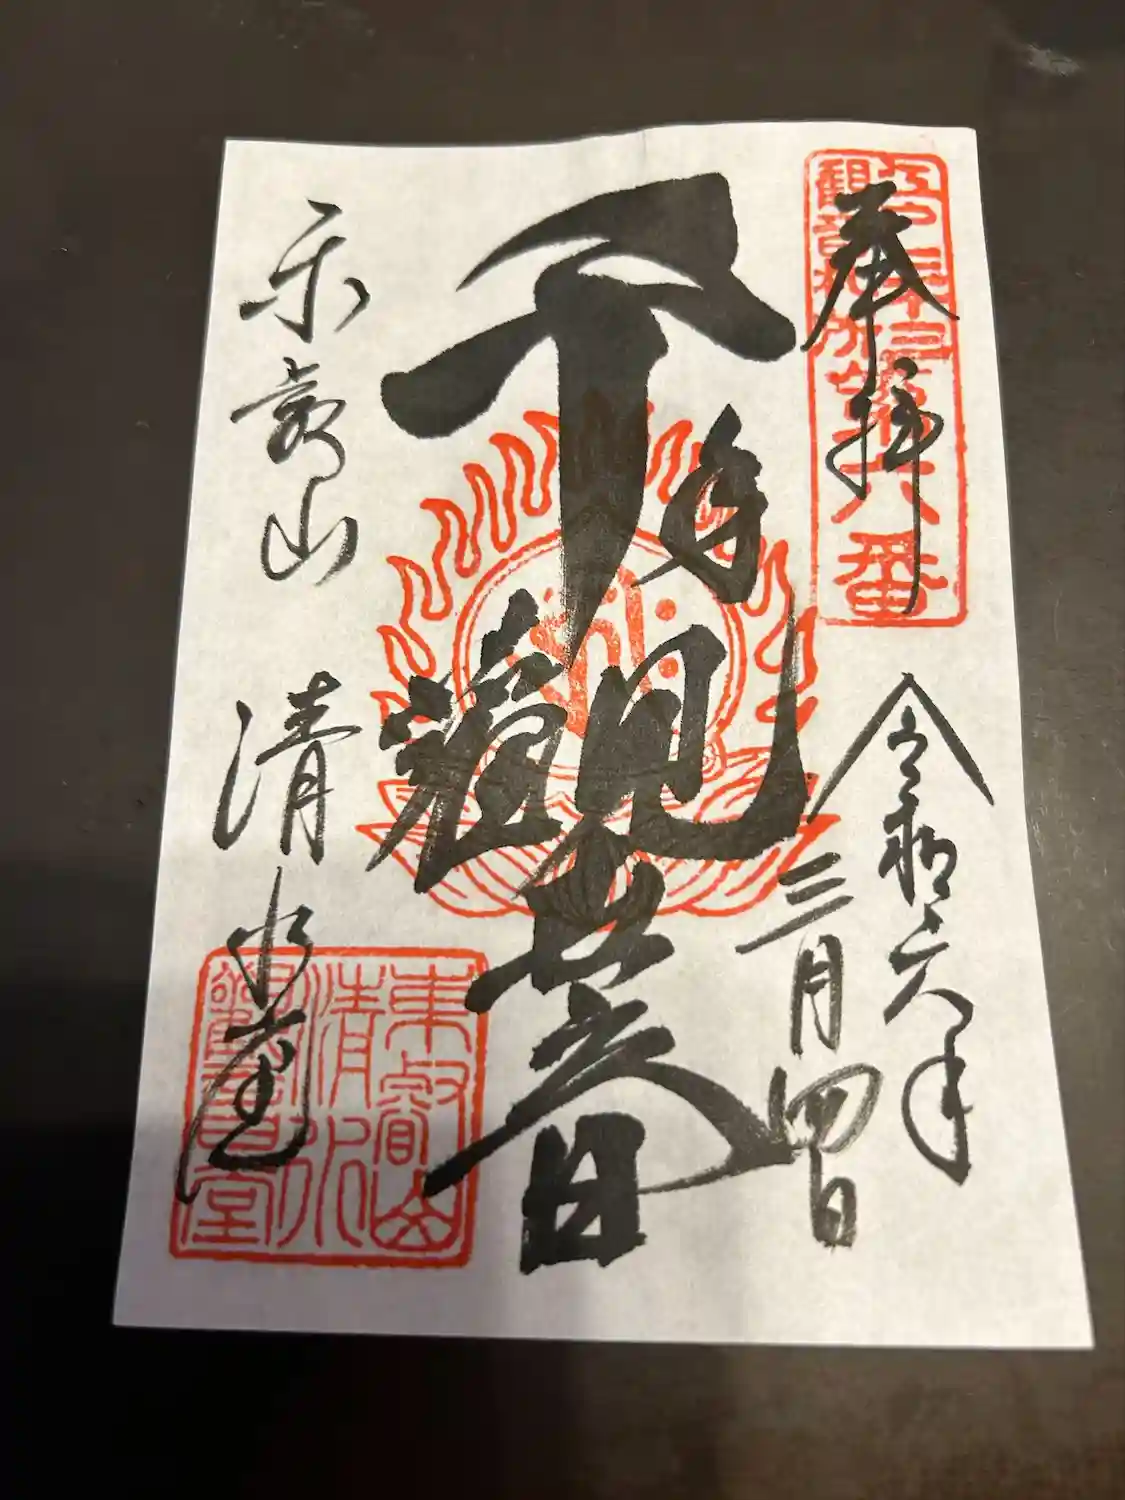 奉拝
江戸三十三
観音札所第六番
令和六年
三月四日
千手
観世音
東叡山
清水堂
東叡山
清水
観音堂